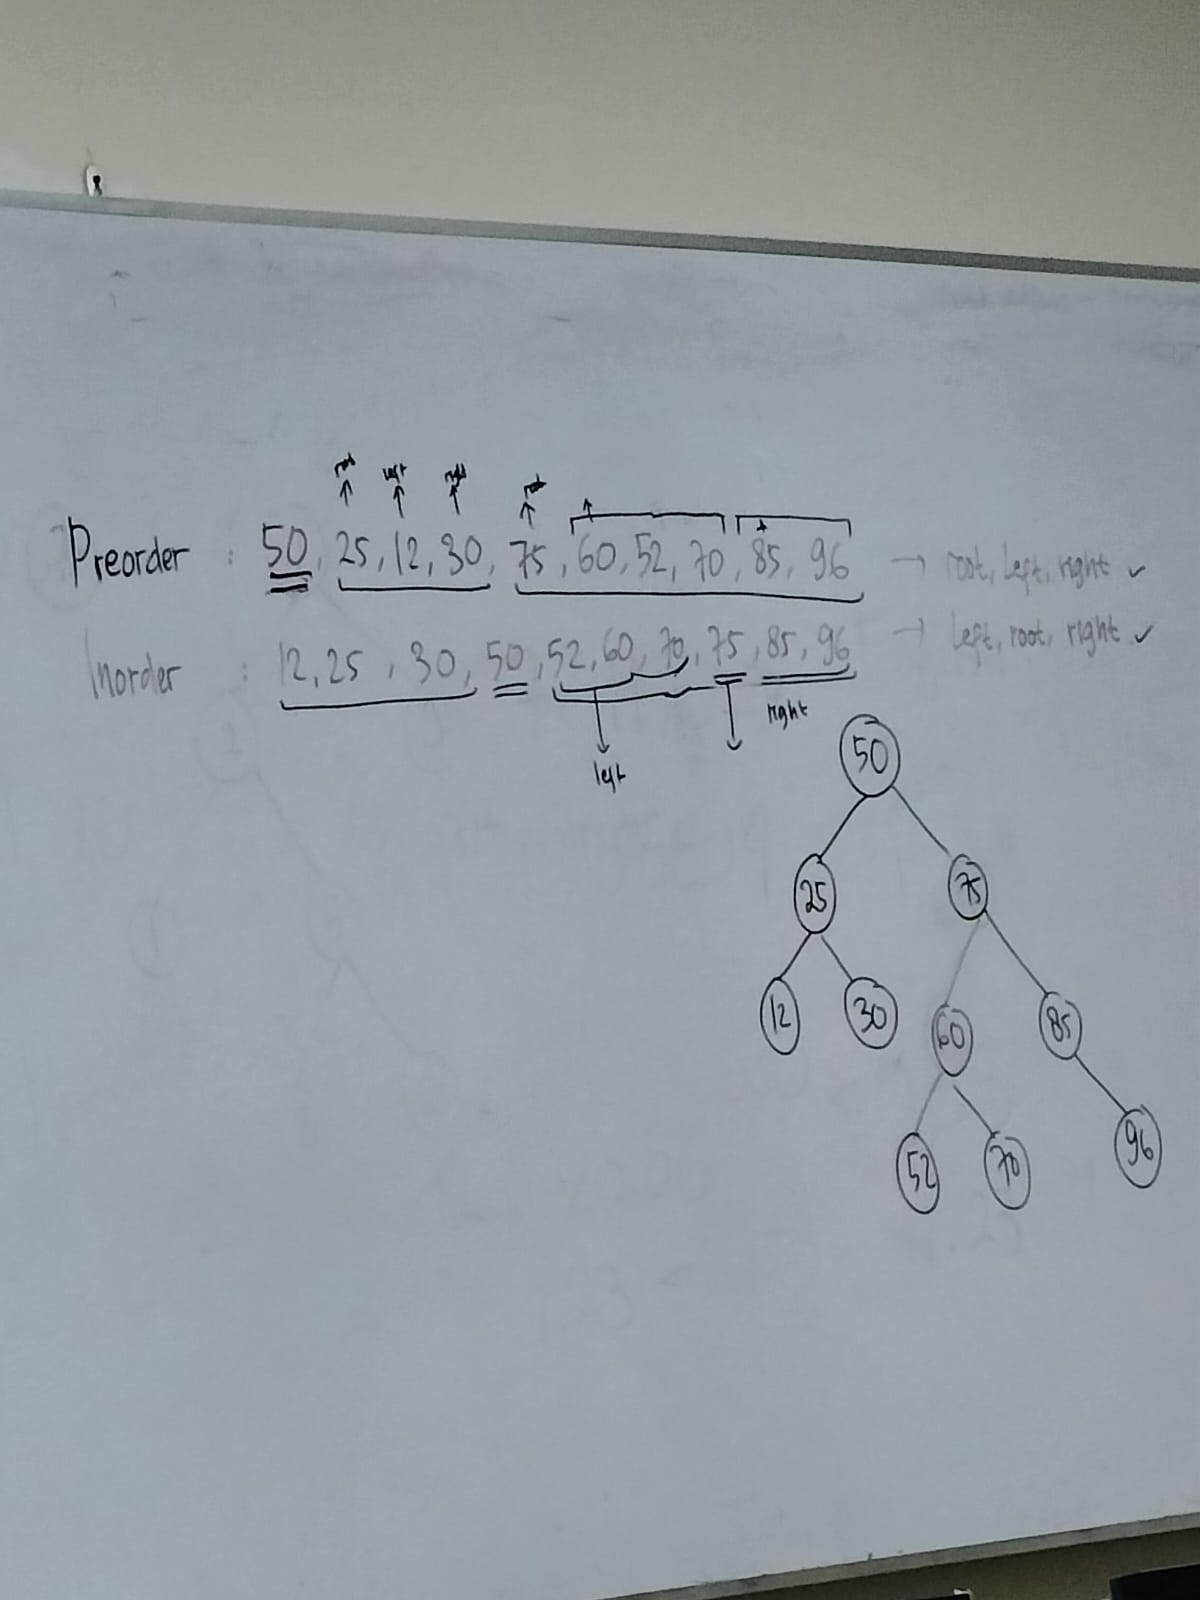 root left right root
Preorder : 50, 25, 12, 30, 75, 60, 52, 70, 85, 96 → root, left, right ✓
Inorder : 12, 25, 30, 50, 52, 60, 70, 75, 85, 96 → left, root, right ✓
left right
50
25 75
12 30 60 85
52 70 96